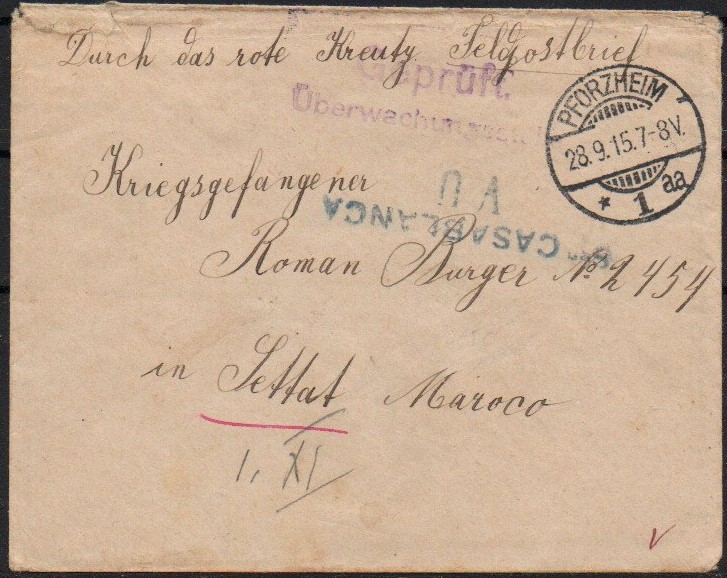 Durch das rote Kreutz. Feldpostbrief
Geprüft.
Überwachungsst
PFORZHEIM
28.9.15.7-8V.
* 1 aa
Kriegsgefangener
VU
CASABLANCA
Roman Burger No 2454
in Settat Maroco
1. XI
V